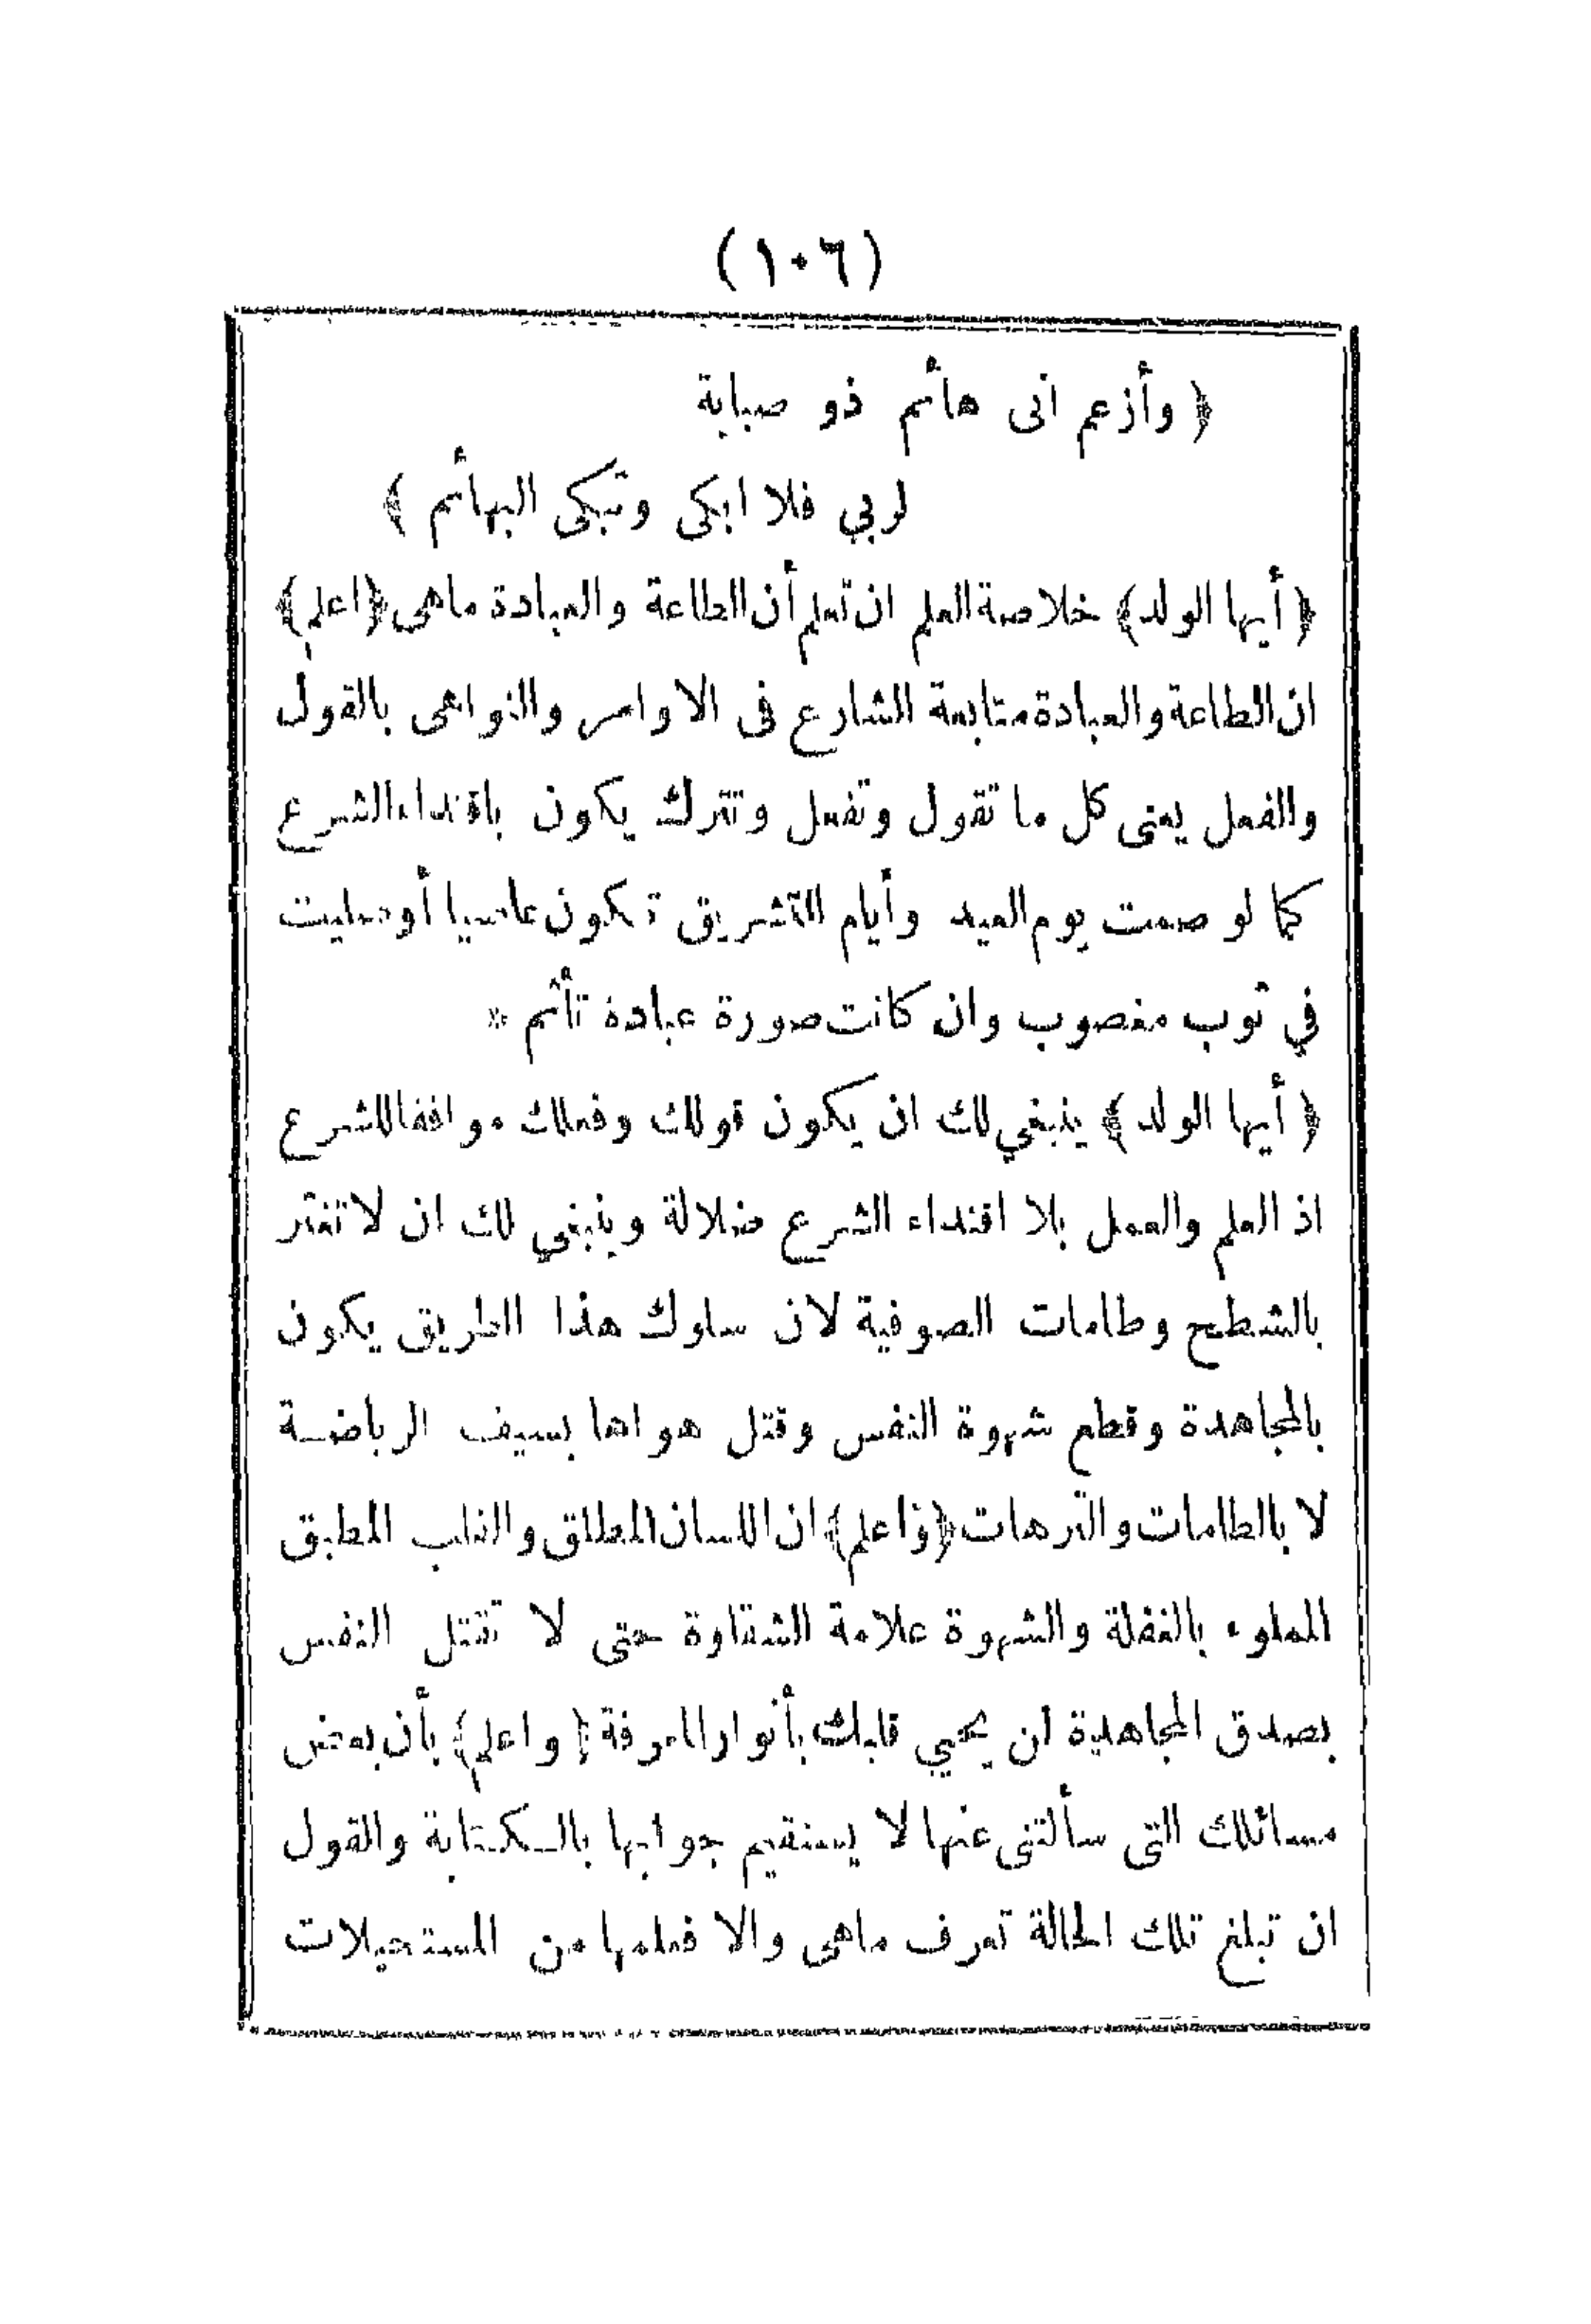 (١٠٦)
﴿ وأزعم انى هائم ذو صبابة
لربي فلا ابكى وتبكى البهائم ﴾
﴿أيها الولد﴾ خلاصة العلم ان تعلم أن الطاعة والعبادة ماهى ﴿اعلم﴾
ان الطاعة والعبادة متابعة الشارع فى الاوامر والنواهى بالقول
والفعل يعنى كل ما تقول وتفعل وتترك يكون باقتداء الشرع
كما لو صمت يوم العيد وأيام التشريق تكون عاصيا أو صليت
في ثوب مغصوب وان كانت صورة عبادة تأثم *
﴿ أيها الولد ﴾ ينبغي لك ان يكون قولك وفعلك موافقا للشرع
اذ العلم والعمل بلا اقتداء الشرع ضلالة وينبغي لك ان لا تغتر
بالشطح وطامات الصوفية لان سلوك هذا الطريق يكون
بالمجاهدة وقطع شهوة النفس وقتل هواها بسيف الرياضة
لا بالطامات والترهات ﴿واعلم﴾ ان اللسان المطلق والقلب المطبق
المملوء بالغفلة والشهوة علامة الشقاوة حتى لا تقتل النفس
بصدق المجاهدة لن يحيي قلبك بأنوار المعرفة ﴿ واعلم ﴾ بأن بعض
مسائلك التى سألتنى عنها لا يستقيم جوابها بالكتابة والقول
ان تبلغ تلك الحالة تعرف ماهى والا فعلمها من المستحيلات